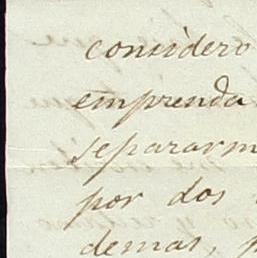 considero
emprenda
separarm
por dos
demas,